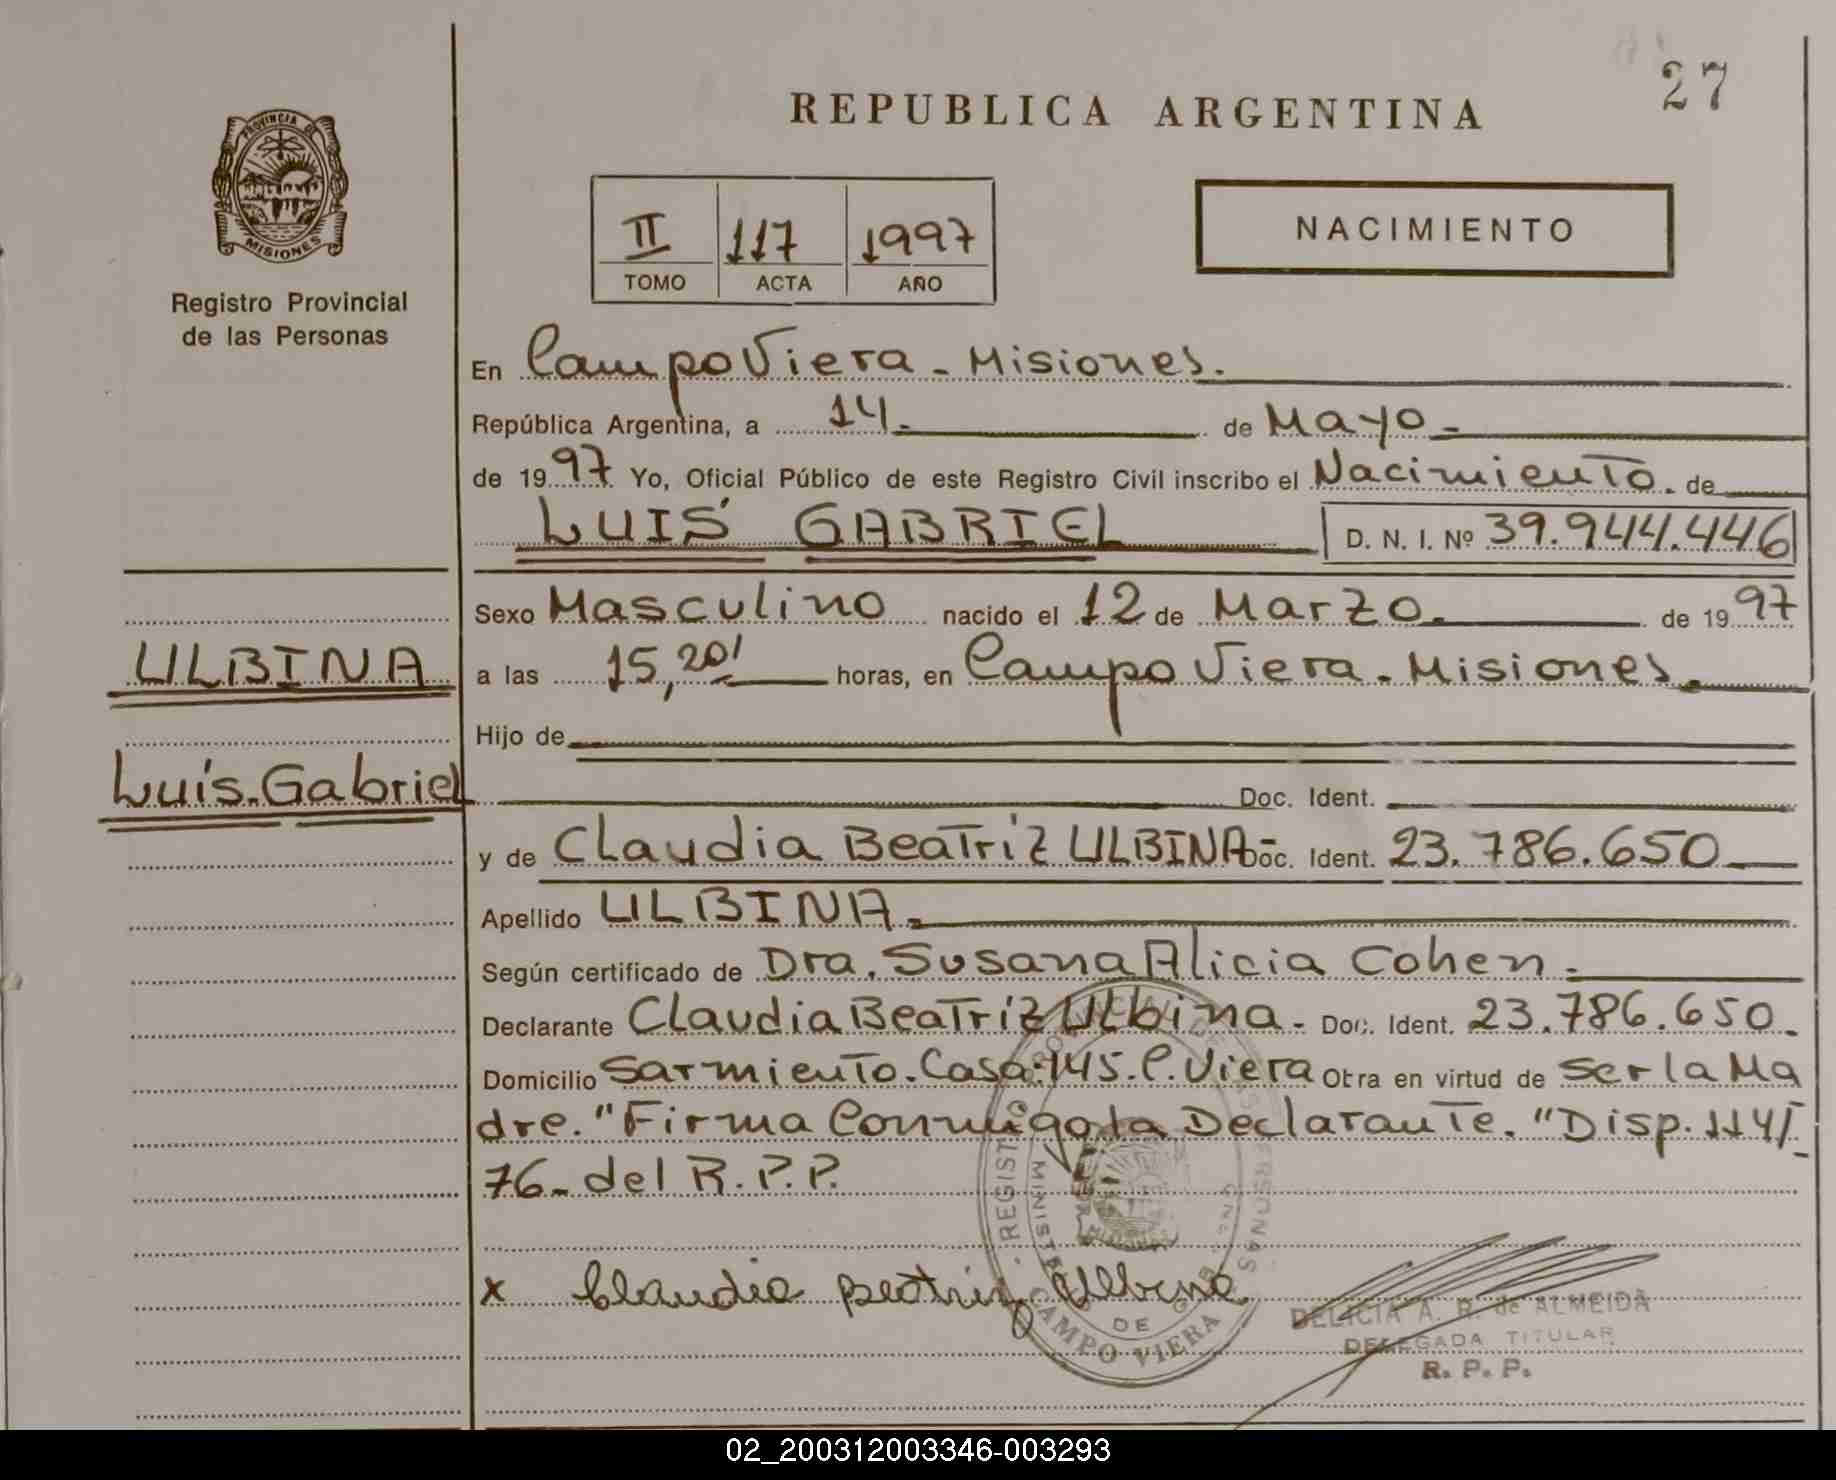 27
REPUBLICA ARGENTINA
PROVINCIA DE
MISIONES
Registro Provincial
de las Personas
II 117 1997
TOMO ACTA AÑO
NACIMIENTO
En Campo Viera - Misiones.
República Argentina, a 14. de Mayo -
de 1997 Yo, Oficial Público de este Registro Civil inscribo el Nacimiento. de
LUIS GABRIEL D. N. I. Nº 39.944.446
Sexo Masculino nacido el 12 de Marzo. de 1997
ULBINA
a las 15,20' horas, en Campo Viera - Misiones.
Hijo de
Luis Gabriel
Doc. Ident.
y de Claudia Beatriz ULBINA Doc. Ident. 23.786.650
Apellido ULBINA.
Según certificado de Dra. Susana Alicia Cohen.
Declarante Claudia Beatriz Ulbina - Doc. Ident. 23.786.650.
Domicilio Sarmiento. Casa: 145. C. Viera Obra en virtud de ser la Ma
dre. "Firma Conmigo la Declarante. "Disp. 114/
76- del R.P.P.
x Claudia Beatriz Ulbina
CAMPO VIERA
DELICIA A. R. de ALMEIDA
DELEGADA TITULAR
R. P. P.
02_200312003346-003293